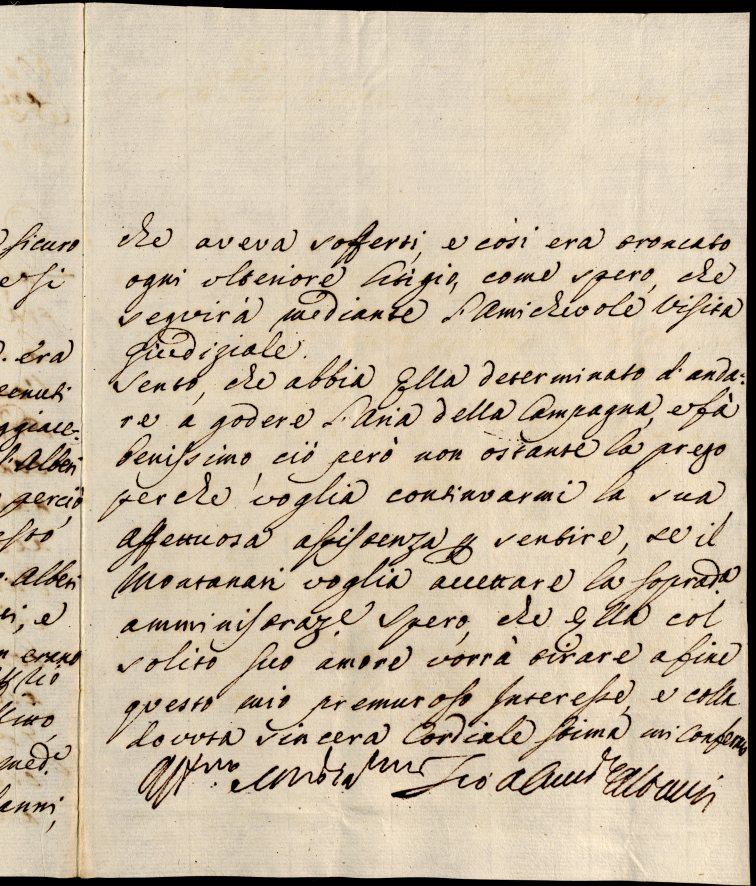 sicuro
era
Alberi
perciò
Alberi
e
erano
che aveva sofferti, e così era troncato
ogni ulteriore litigio, come spero, che
seguirà mediante l'amichevole visita
giudiziale.
Sento, che abbia Ella determinato d'anda-
re a godere l'aria della Campagna, e fà
benissimo, ciò però non ostante la prego
perche voglia continuarmi la sua
affettuosa assistenza, e sentire, se il
Montanari voglia accettare la sopradª
amministraze. Spero, che Ella col
solito suo amore vorrà tirare a fine
questo mio premuroso Interesse, e colla
dovuta sincera Cordiale stima mi confermo